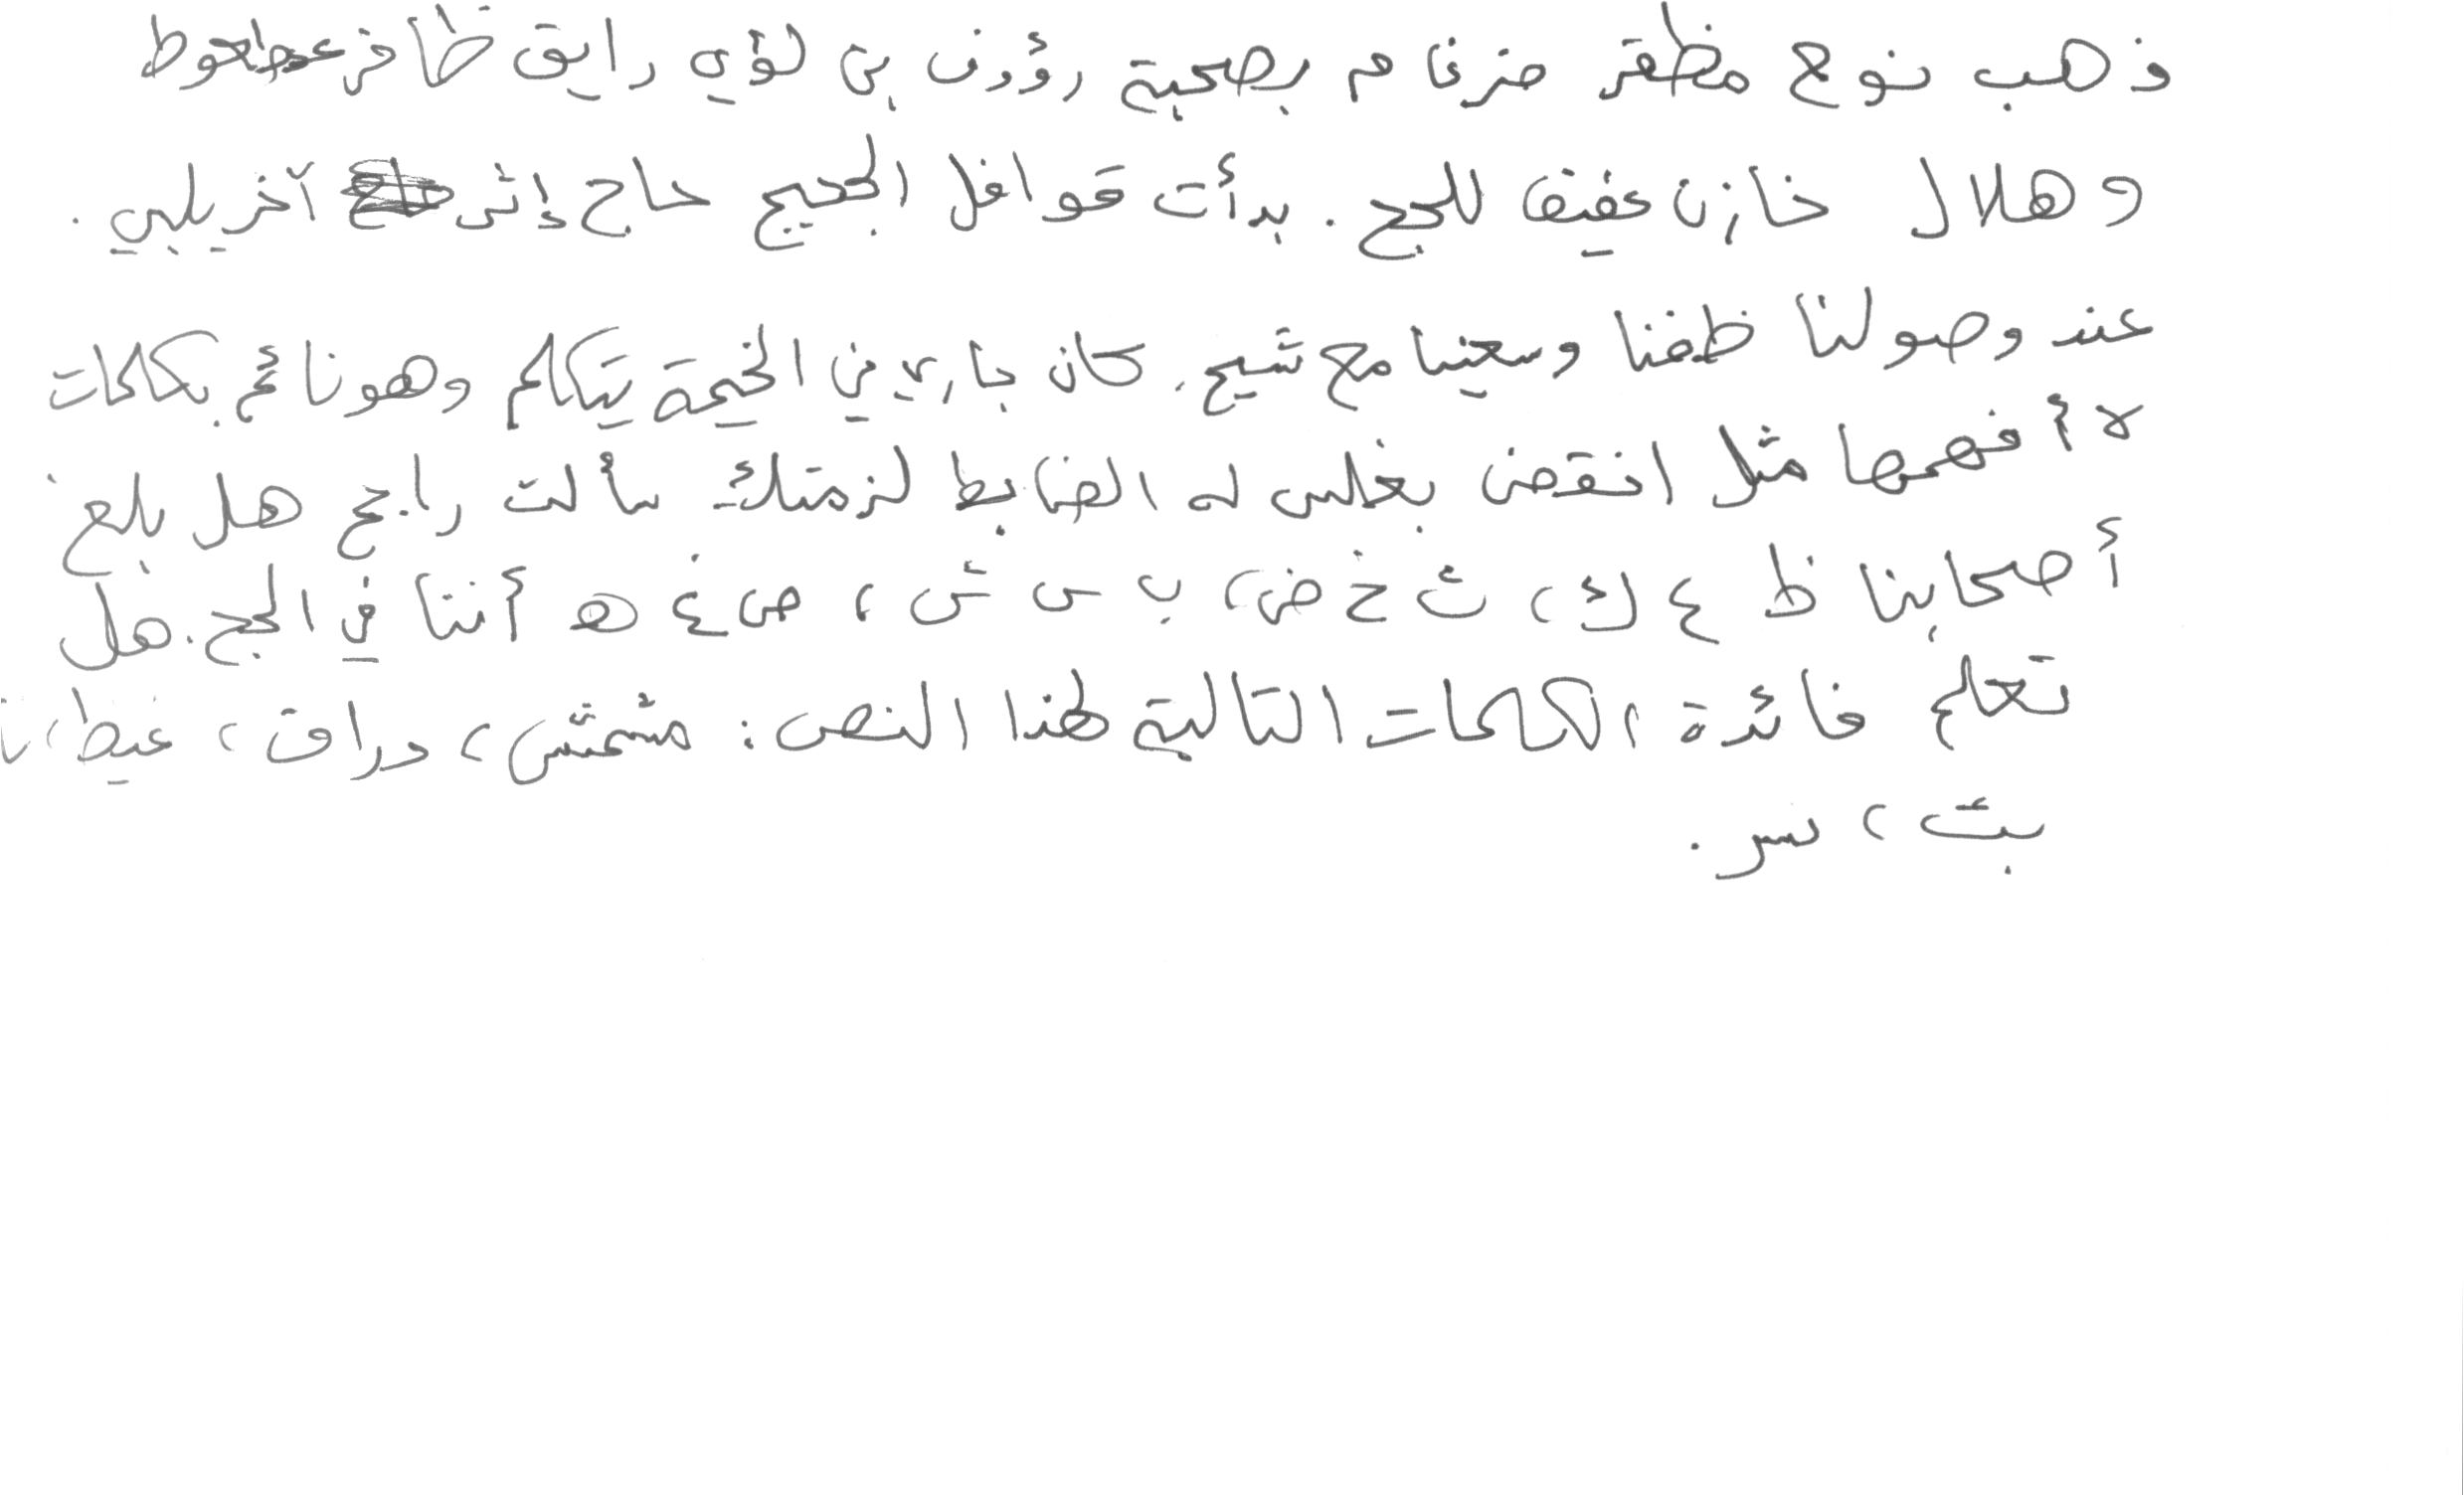 ذهب نوح مظفر ضرغام بصحبة رؤوف بن لؤي رايق ظافر عطعوط
وهلال خازن عفيف للحج. بدأت قوافل الحجيج حاج إثر آخر يلبي.
عند وصولنا طفنا وسعينا مع شيخ. كان جاري في الخيمة يتكلم وهو نائم بكلمات
لا أفهمها مثل انقض بغلس له الضابط لزمتك سألت رابح هل بلغ
أصحابنا ظ ع ك، ث خ ض، ب س ش، ص غ ه أننا في الحج. هل
تعلم فائدة الكلمات التالية لهذا النص: مشمش، دراق، غيط،
بث، سر.